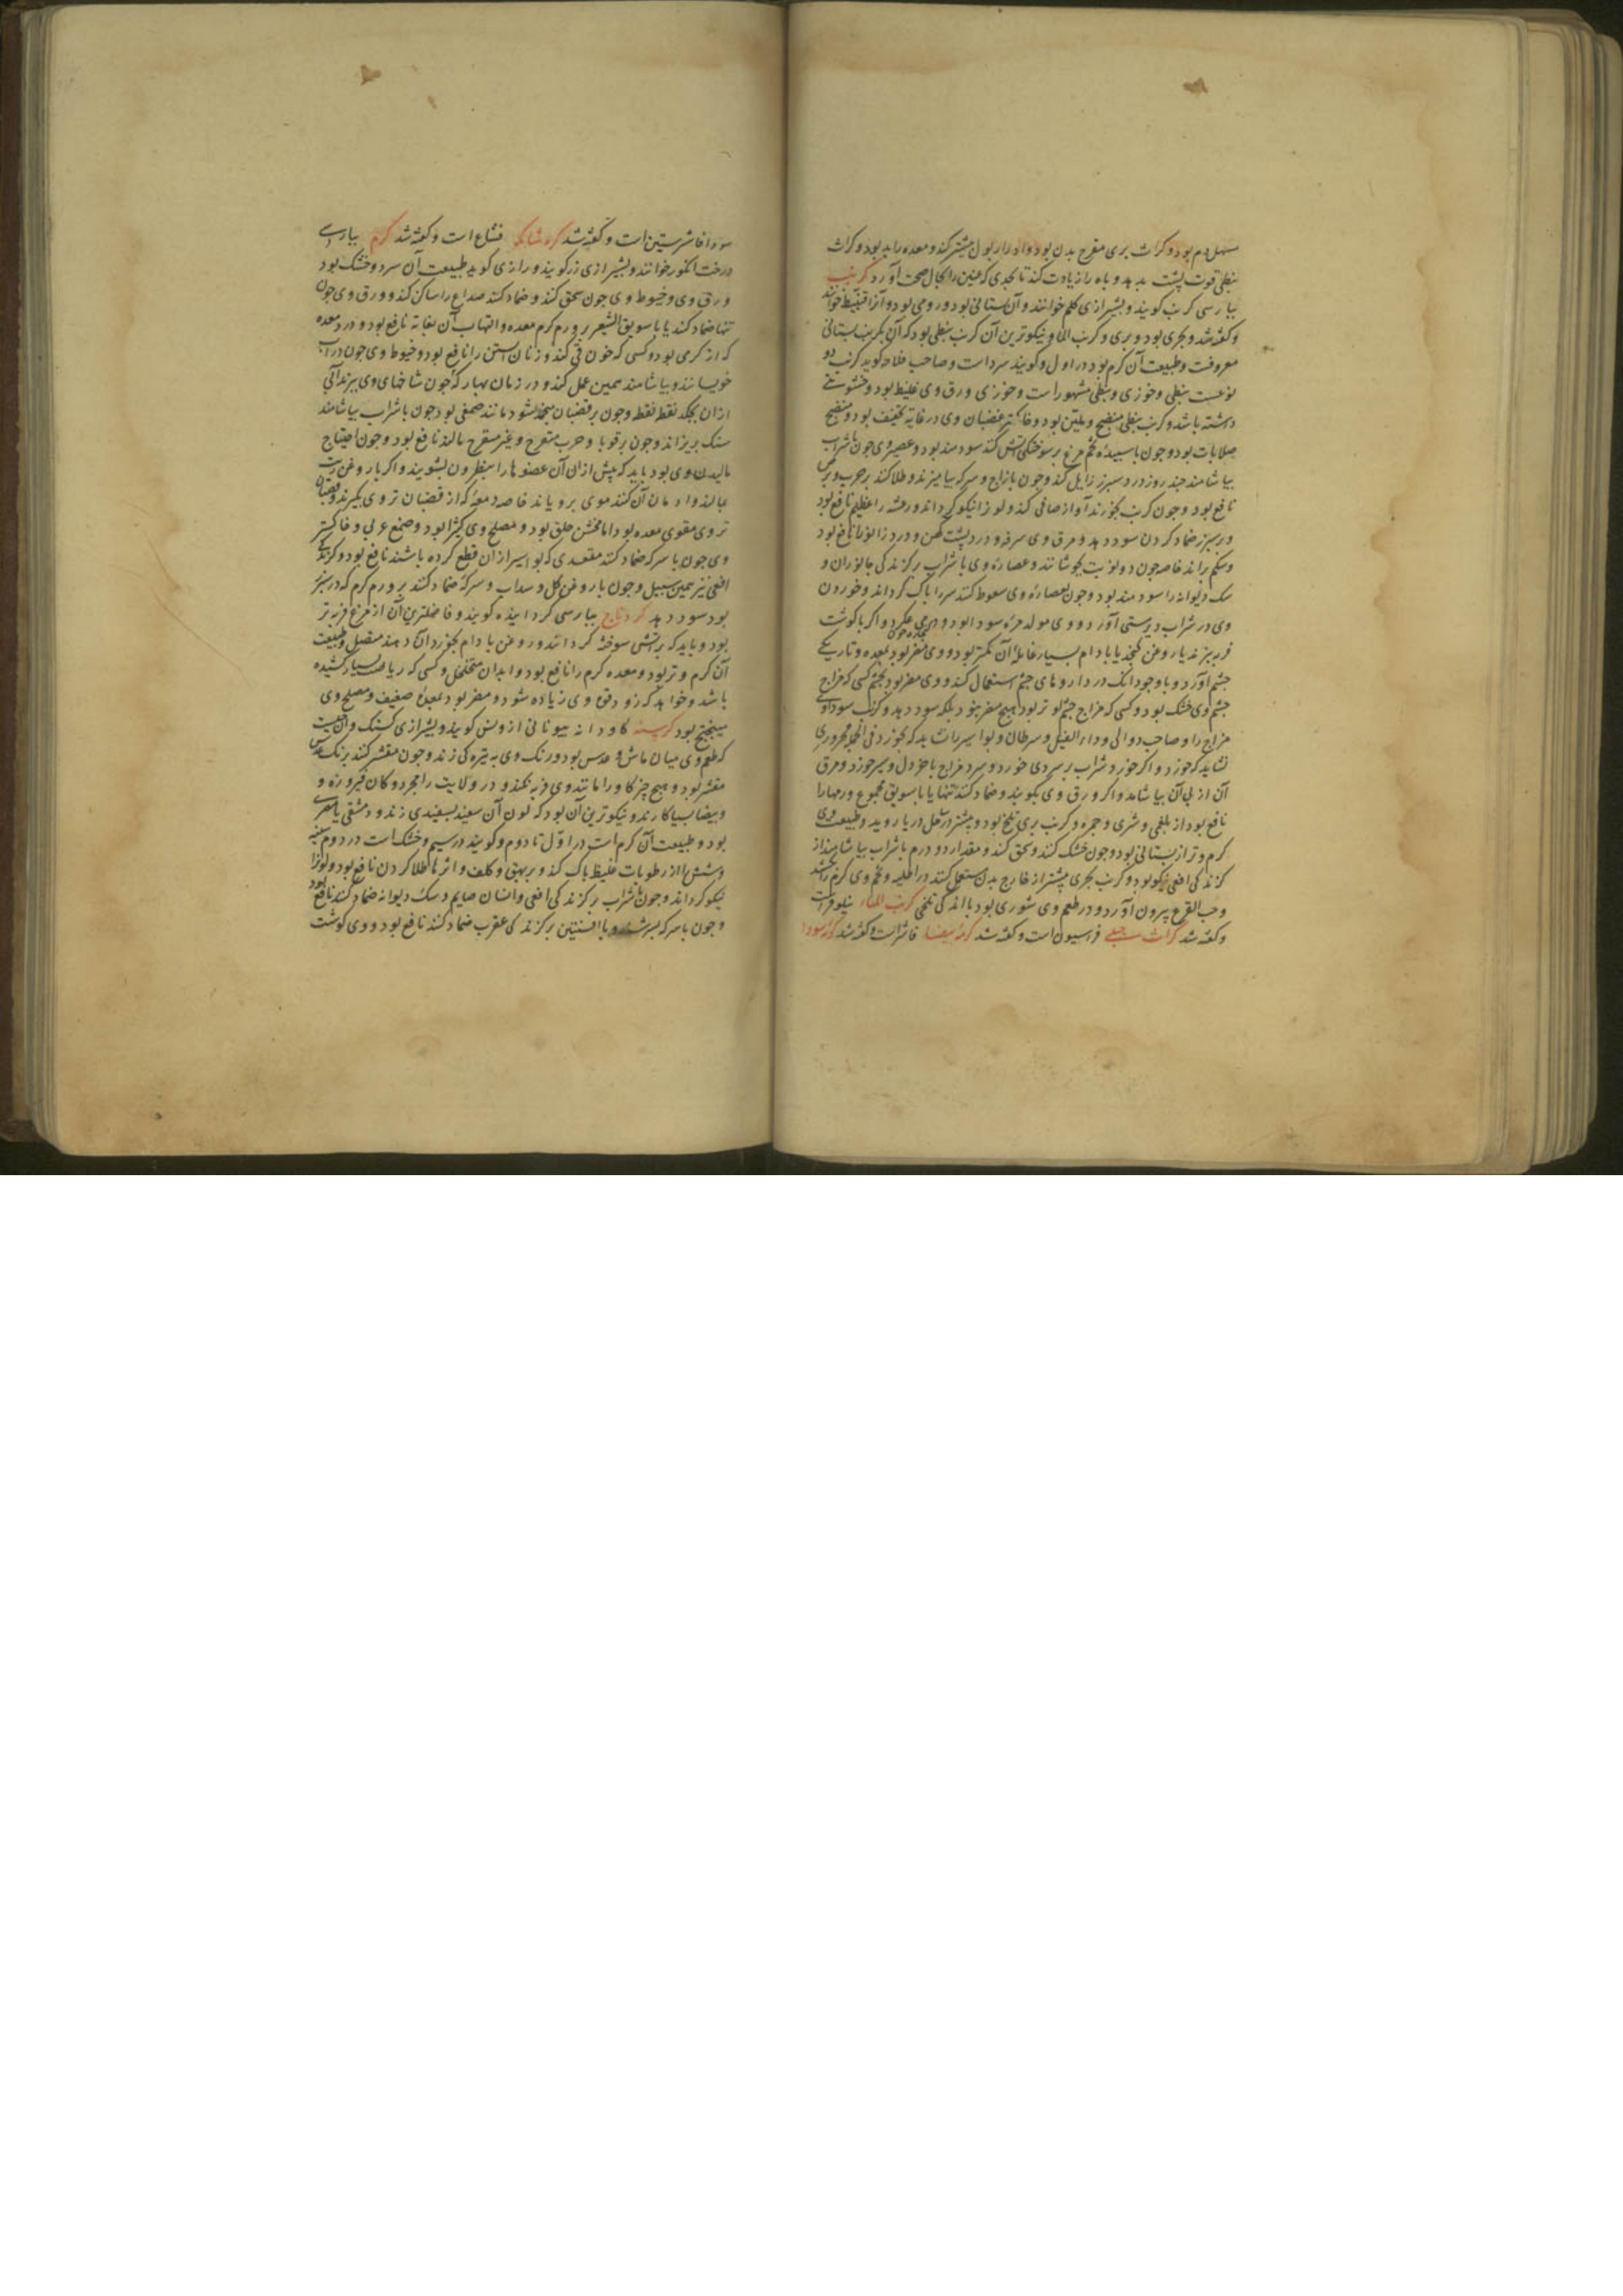 مسهل دم بود و کراث بری مقرح بدن بود و ادرار بول بیشتر کند و معده را بد بود و کراث
نبطی قوت پشت بدهد و باه را زیادت کند تا بحدی که عنین را بحال صحت آورد کرنب
بپارسی کرنب کویند و بشیرازی کلم خوانند و آن بستانی بود و رومی بود و آنرا قنبیط خوانند
و کفته شد و بحری بود و بری و کرنب الما و نیکوترین آن کرنب نبطی بود که آن کرنب بستانی
معروفست و طبیعت آن کرم بود در اول و کویند سردست و صاحب فلاحه کوید کرنب دو
نوعست نبطی و خوزی و نبطی مشهورست و خوزی ورق وی غلیظ بود و خشونتی
داشته باشد و کرنب نبطی منضج و ملین بود و خاکستر قضبان وی در غایه تجفیف بود و منضج
صلابات بود و چون با سپیده تخم مرغ بر سوختکی آتش کنند سودمند بود و عصیر وی چون با شراب
بیاشامند چند روز درد سپرز زایل کند و چون با زاج و سرکه بیامیزند و طلا کنند بر جرب و برص
نافع بود و چون کرنب بخورند آواز صافی کند و لون را نیکو کرداند و رعشه را عظیم نافع بود
و بر سپرز ضماد کردن سود دهد و مرق وی سرفه و درد پشت کهن و درد زانو را نافع بود
و شکم براند خاصه چون دو نوبت بجوشانند و عصاره وی با شراب بر کزندکی جانوران و
سک دیوانه را سودمند بود و چون بعصاره وی سعوط کنند سر را پاک کرداند و خوردن
وی در شراب دیر مستی آورد و وی مولد مره سودا بود و اکر با کوشت
فربه پزند یا روغن کنجد یا بادام بسیار غایله آن کمتر بود و وی مضر بود بمعده و تاریکی
چشم آورد و با وجود آنک در داروهای چشم استعمال کنند و وی مضر بود بچشم کسی که مزاج
چشم وی خشک بود و کسی که مزاج چشم او تر بود هیچ مضر نبود بلکه سود دهد و کرنب سوداوی
مزاج را و صاحب دوالی و داء الفیل و سرطان و بواسیر نشاید که بخورد فی الجمله محروری
نشاید که خورد و اکر خورد شراب بر سردی خورد و سرد مزاج با خردل و سیر خورد و مرق
آن از پی آن بیاشامد و اکر ورق وی بکوبند و ضماد کنند تنها یا با سویق مجموع ورمها را
نافع بود از بلغمی و شری و حمره و کرنب بری تلخ بود و بیشتر در ساحل دریا روید و طبیعت وی
کرم‌تر از بستانی بود و چون خشک کنند و سحق کنند و مقدار دو درم با شراب بیاشامند از
کزندکی افعی نیکو بود و کرنب بحری بیشتر از خارج بدن مستعمل کنند در اطلیه و تخم وی کرم را بکشد
و حب القرع بیرون آورد و در طعم وی شوری بود با اندکی تلخی کرنب الماء نیلوفرست
و کفته شد کراث جبلی فراسیون است و کفته شد کرمه بیضا فاشراست و کفته شد کرمه سودا
سودا فاشرستین است و کفته شد فشاغ است و کفته شد کرم بپارسی
درخت انکور خوانند و بشیرازی رز کویند و رازی کوید طبیعت آن سرد و خشک بود
ورق وی و خیوط وی چون سحق کنند و ضماد کنند صداع را ساکن کند و ورق وی چون
تنها ضماد کنند یا با سویق الشعیر بر ورم کرم معده و التهاب آن بغایه نافع بود و درد معده
که از کرمی بود و کسی که خون قی کند و زنان آبستن را نافع بود و خیوط وی چون در آب
خویسانند و بیاشامند همین عمل کند و در زمان بهار که چون شاخهای وی ببرند آبی
از آن بچکد نقط نقط و چون بر قضبان منجمد شود مانند صمغی بود چون با شراب بیاشامند
سنک بریزاند و چون بر قوبا و جرب متقرح و غیر متقرح مالند نافع بود و چون احتیاج
مالیدن وی بود باید که پیش از آن آن عضو ها را بنطرون بشویند و اکر با روغن زیت
بمالند و ادمان آن کنند موی برویاند خاصه دمعه که از قضبان تر وی بکیرند و قضبان
تر وی مقوی معده بود اما مخشن حلق بود و مصلح وی کثیرا بود و صمغ عربی و خاکستر
وی چون با سرکه ضماد کنند مقعدی که بواسیر از آن قطع کرده باشند نافع بود و کزندکی
افعی نیز همین سبیل و چون با روغن کل و سداب و سرکه ضماد کنند بر ورم کرم که در سپرز
بود سود دهد کردناج بپارسی کردانیده کویند و فاضلترین آن از مرغ فربه تر
بود و باید که بر آتش سوخته کردانند و روغن بادام بخورد آن دهند متصل و طبیعت
آن کرم و تر بود و معده کرم را نافع بود و ابدان متخلخل و کسی که ریاضت بسیار کشیده
باشد و خواهد که زود قوة وی زیاده شود و مضر بود بمعده ضعیف و مصلح وی
میبختج بود کرسنه کاودانه بیونانی اروبس کویند و بشیرازی کسنک و آن حبیست
که طعم وی میان ماش و عدس بود و رنک وی به تیره کی زند و چون مقشر کنند برنک عدس
مقشر بود و هیچ چیز کاو را مانند وی فربه نکند و در ولایت فیروزه و
بیضا بسیار کارند و نیکوترین آن بود که لون آن سفید بسفیدی زند و دمشقی یا مصری
بود و طبیعت آن کرم است در اول تا دوم و کویند در سیم و خشک است در دوم سینه
و شش را از رطوبات غلیظ پاک کند و بر بهق و کلف و اثرها طلا کردن نافع بود و لون را
نیکو کرداند و چون با شراب بر کزندکی افعی و انسان صایم و سک دیوانه ضماد کنند نافع بود
و چون با سرکه بسرشند و با افسنتین بر کزندکی عقرب ضماد کنند نافع بود و وی کوشت